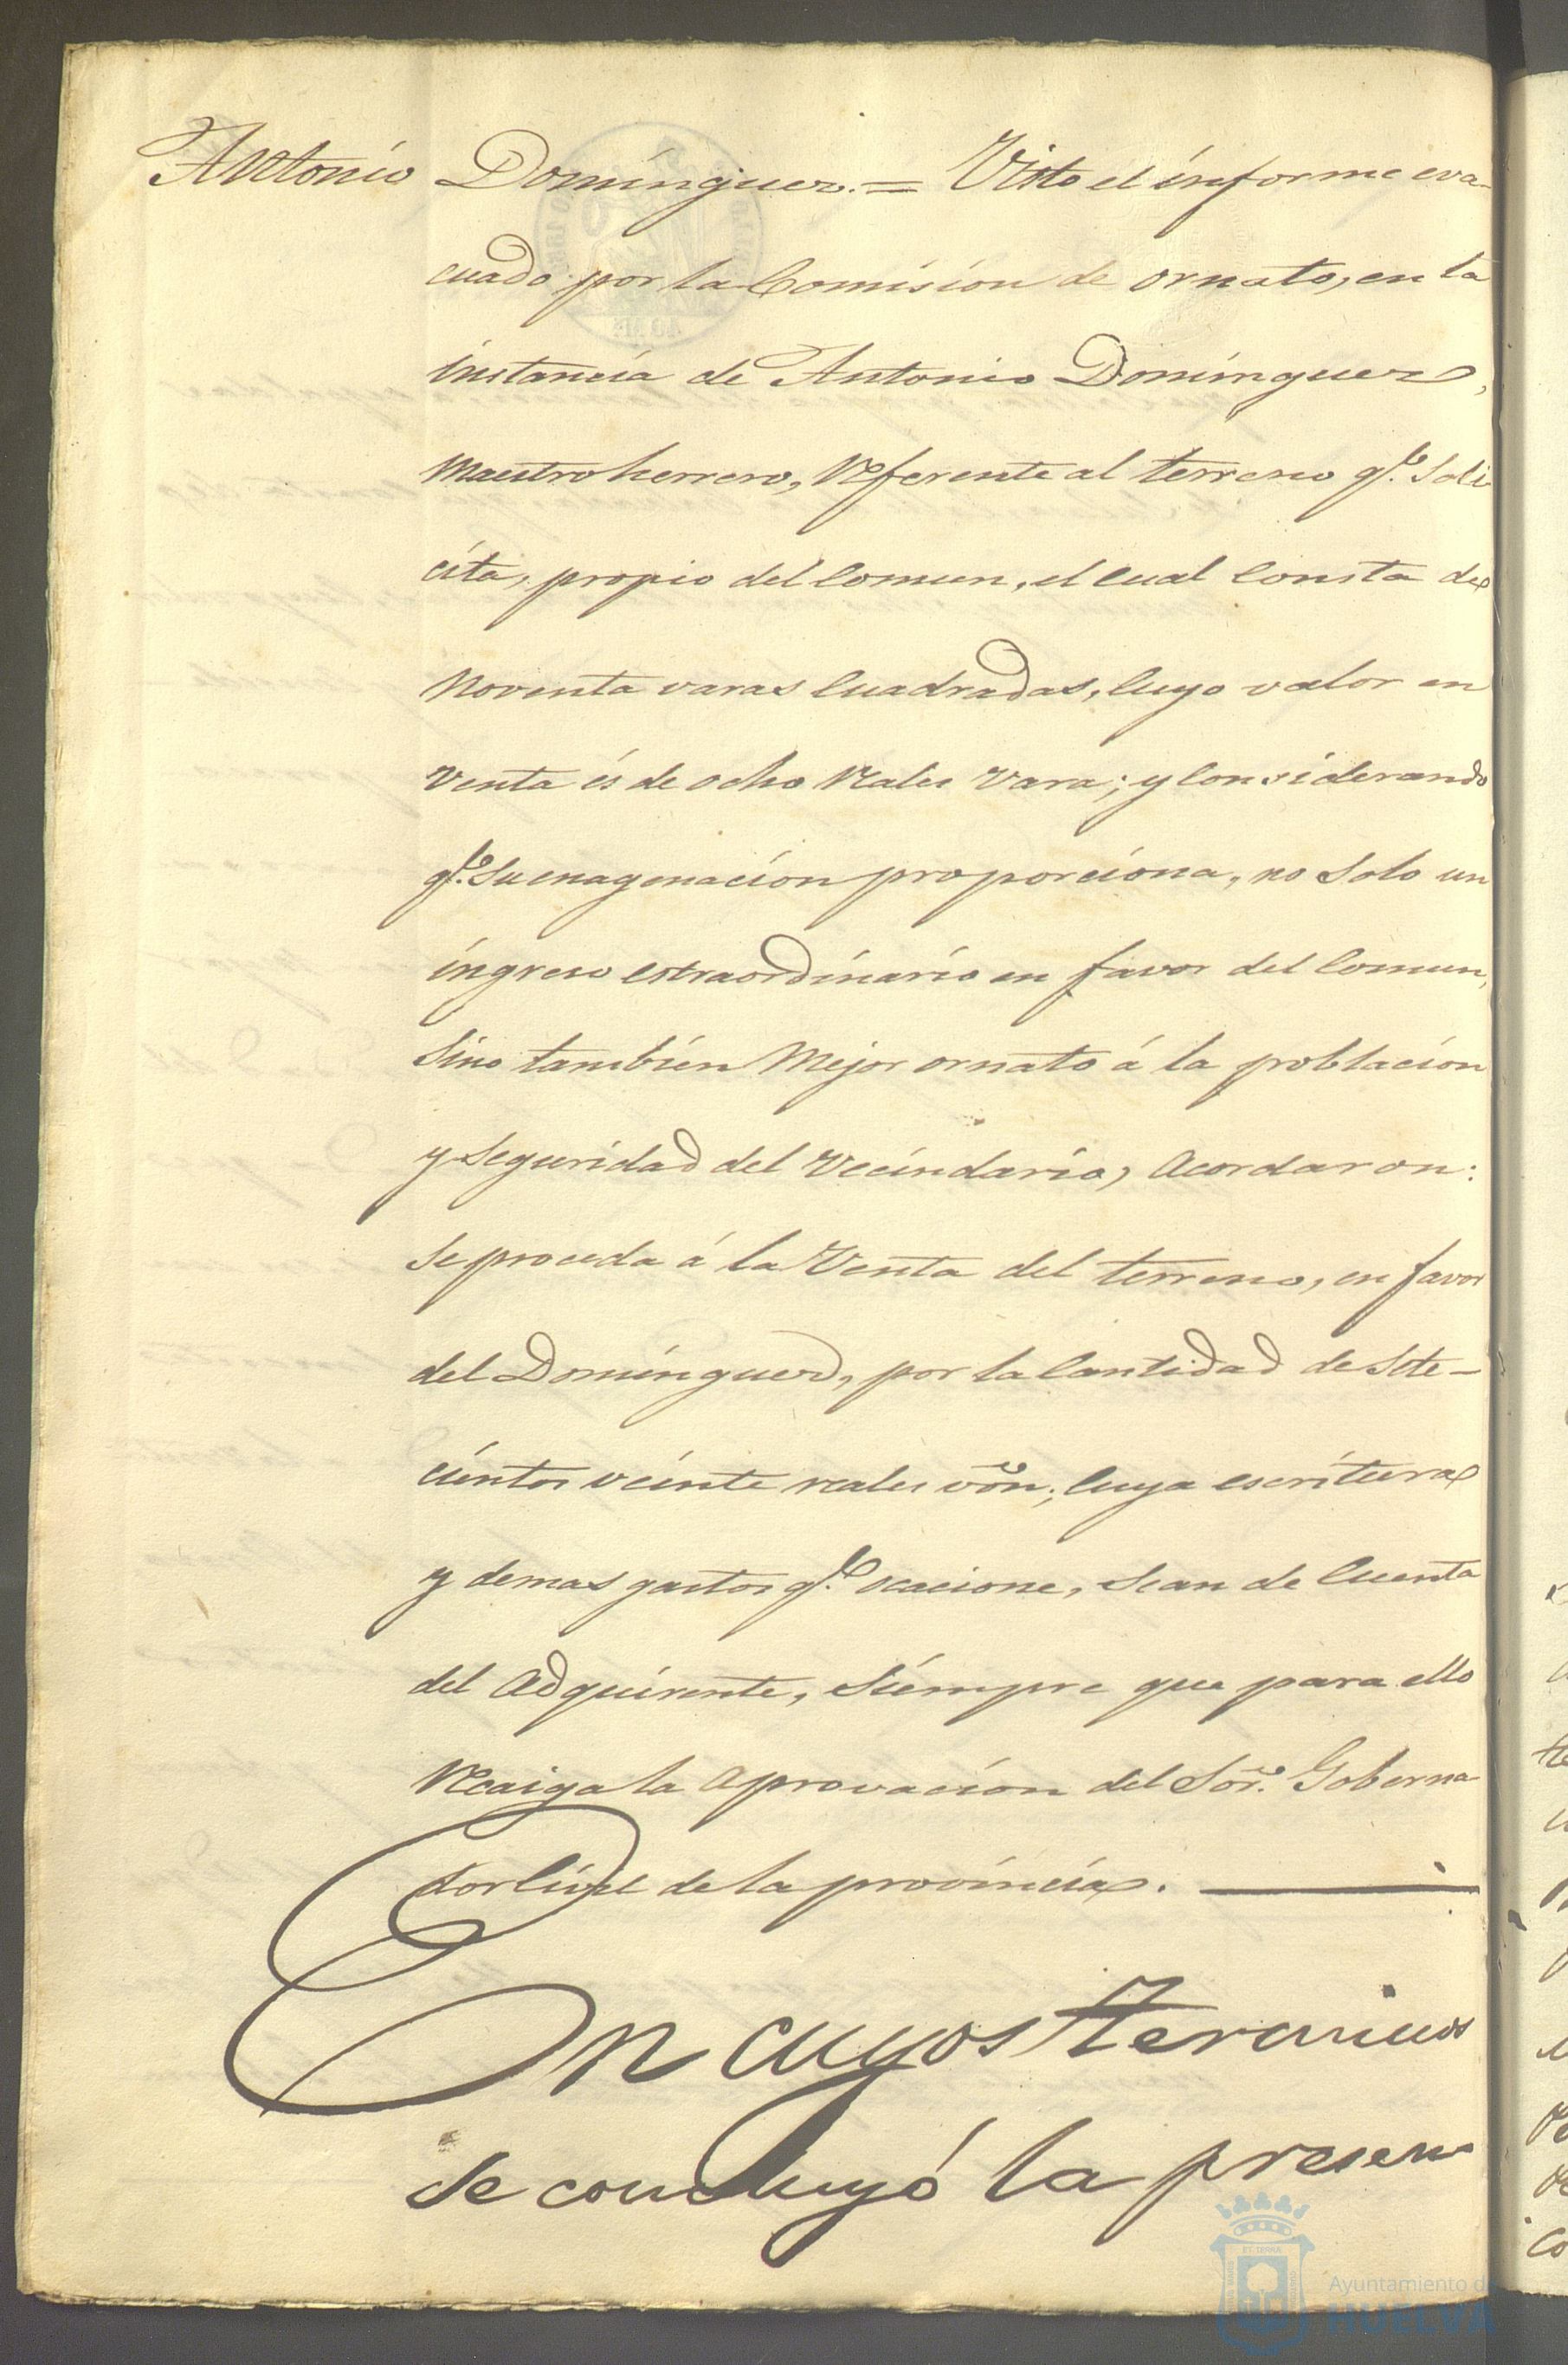 Antonio Dominguez. = Visto el informe eva-
cuado por la Comision de ornato, en la
instancia de Antonio Dominguez,
Maestro herrero, Referente al terreno qe. Soli
cita, propio del Comun, el cual Consta de
Noventa varas Cuadradas, Cuyo valor en
Venta és de ocho Reales Vara; y Considerando
qe. Su enagenacion proporciona, no Solo un
ingreso estraordinario en favor del Comun,
Sino tambien Mejor ornato á la poblacion
y Seguridad del Vecindario, Acordaron:
Se proceda á la Venta del terreno, en favor
del Dominguez, por la Cantidad de Sete-
cientos veinte reales von; Cuya escritura
y demas gastos qe. ocacione, Sean de Cuenta
del Adquirente, Siempre que para ello
Recaiga la Aprovacion del Sor. Goberna
dor Civil de la provincia.
En cuyos terminos
se concluyó la presen
Ayuntamiento de
HUELVA